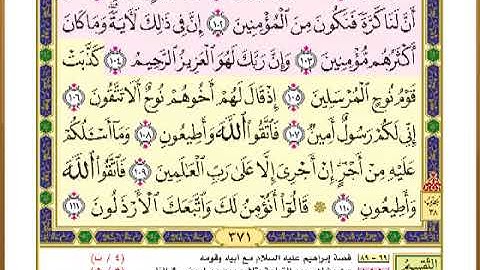 أَنَّ لَنَا كَرَّةً فَنَكُونَ مِنَ ٱلْمُؤْمِنِينَ ١٠٢ إِنَّ فِى ذَٰلِكَ لَءَايَةً ۖ وَمَا كَانَ
أَكْثَرُهُم مُّؤْمِنِينَ ١٠٣ وَإِنَّ رَبَّكَ لَهُوَ ٱلْعَزِيزُ ٱلرَّحِيمُ ١٠٤ كَذَّبَتْ
قَوْمُ نُوحٍ ٱلْمُرْسَلِينَ ١٠٥ إِذْ قَالَ لَهُمْ أَخُوهُمْ نُوحٌ أَلَا تَتَّقُونَ ١٠٦
إِنِّى لَكُمْ رَسُولٌ أَمِينٌ ١٠٧ فَٱتَّقُوا۟ ٱللَّهَ وَأَطِيعُونِ ١٠٨ وَمَآ أَسْـَٔلُكُمْ
عَلَيْهِ مِنْ أَجْرٍ ۖ إِنْ أَجْرِىَ إِلَّا عَلَىٰ رَبِّ ٱلْعَٰلَمِينَ ١٠٩ فَٱتَّقُوا۟ ٱللَّهَ
وَأَطِيعُونِ ١١٠ ۞ قَالُوٓا۟ أَنُؤْمِنُ لَكَ وَٱتَّبَعَكَ ٱلْأَرْذَلُونَ ١١١
٣٨
٣٧١
٦٩ - ٨٩ قصة إبراهيم عليه السلام مع أبيه وقومه